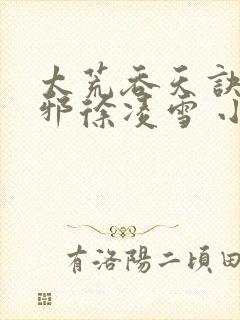 大荒吞天訣
邪徐凌雪 小
有洛陽二頃田